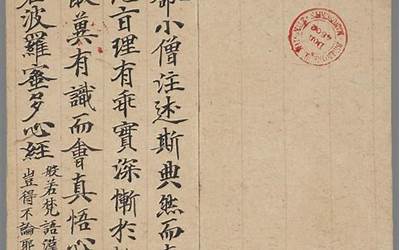 小僧注述斯典然而
理有乖實深慚於
冀有識而會真悟心
若波羅蜜多心經
般若梵語
豈得不論耶